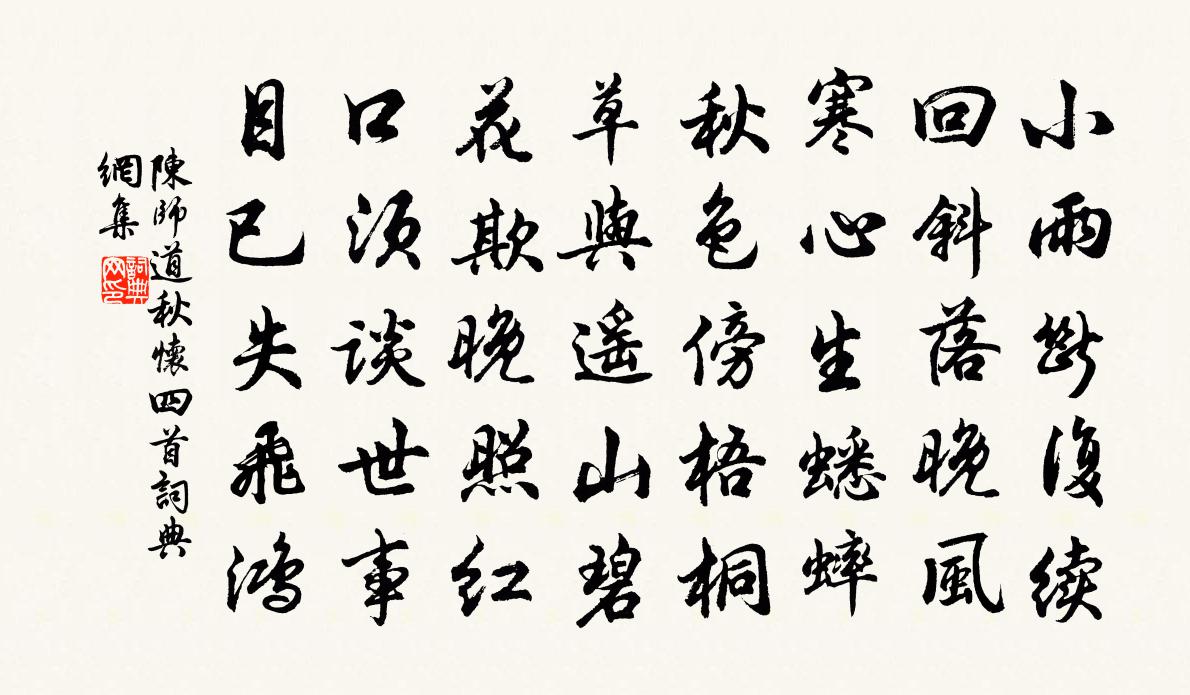 小雨斷復續
回斜落晚風
寒心生蟋蟀
秋色傍梧桐
草與遥山碧
花欺晚照红
口須談世事
目已失飛鴻
陳師道秋懷四首詞典
網集
詞典
网印